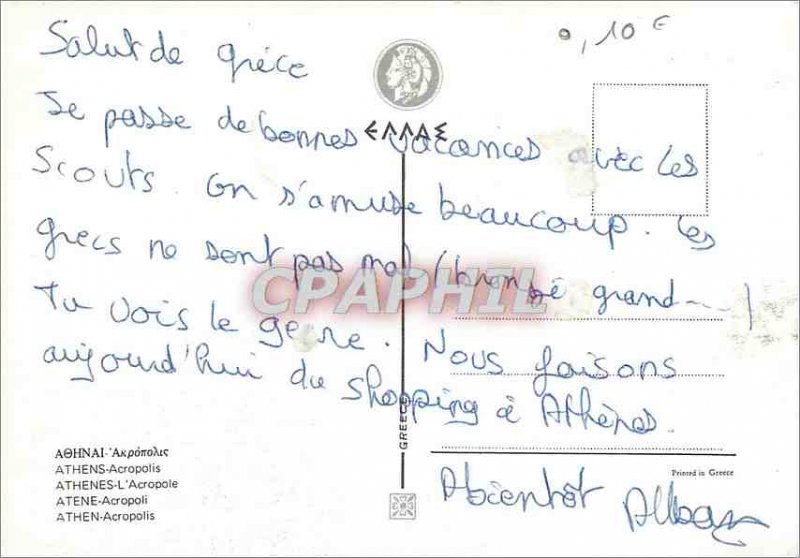 0,10 €
Salut de grèce
ΕΛΛΑΣ
Je passe de bonnes vacances avec les
Scouts. On s'amuse beaucoup. Les
grecs ne sont pas mal (bronzé grand---)
CPAPHIL
Tu vois le genre. Nous faisons
aujourd'hui du shopping à Athènes.
GREECE
ΑΘΗΝΑΙ-Ἀκρόπολις
ATHENS-Acropolis
ATHENES-L'Acropole
ATENE-Acropoli
ATHEN-Acropolis
Printed in Greece
Abientôt Alban